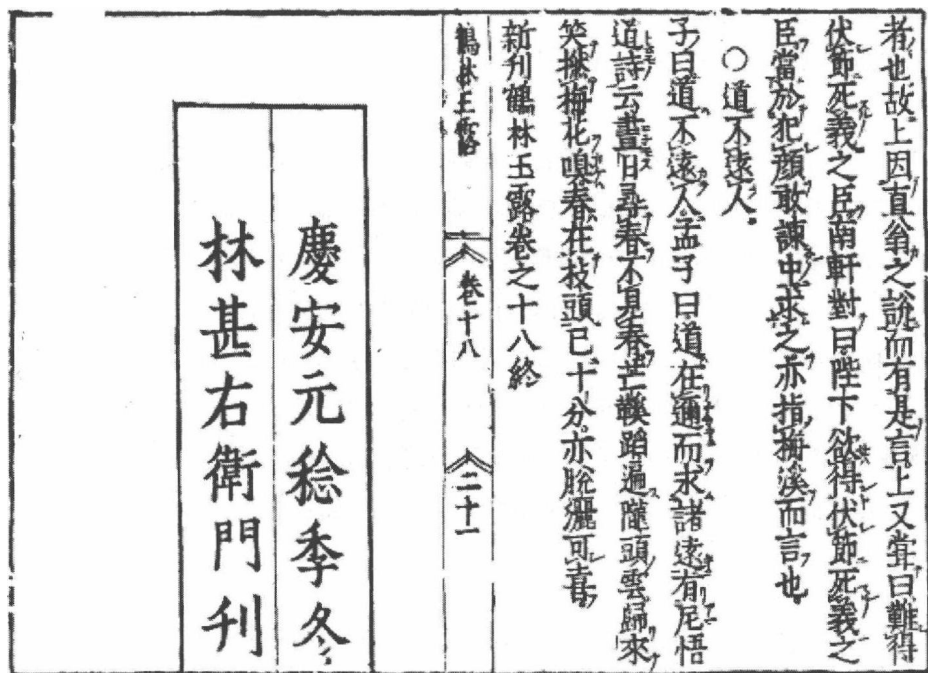 者也故上因直翁之說而有是言上又嘗曰難得
伏節死義之臣南軒對曰陛下欲得伏節死義之
臣當於犯顏敢諫中求之亦指梅溪而言也
○道不遠人
子曰道不遠人孟子曰道在邇而求諸遠有尼悟
道詩云盡日尋春不見春芒鞵踏遍隴頭雲歸來
笑撚梅花嗅春在枝頭已十分亦脫灑可喜
新刊鶴林玉露卷之十八終
鶴林玉露 卷十八 二十一
慶安元稔季冬
林甚右衛門刊